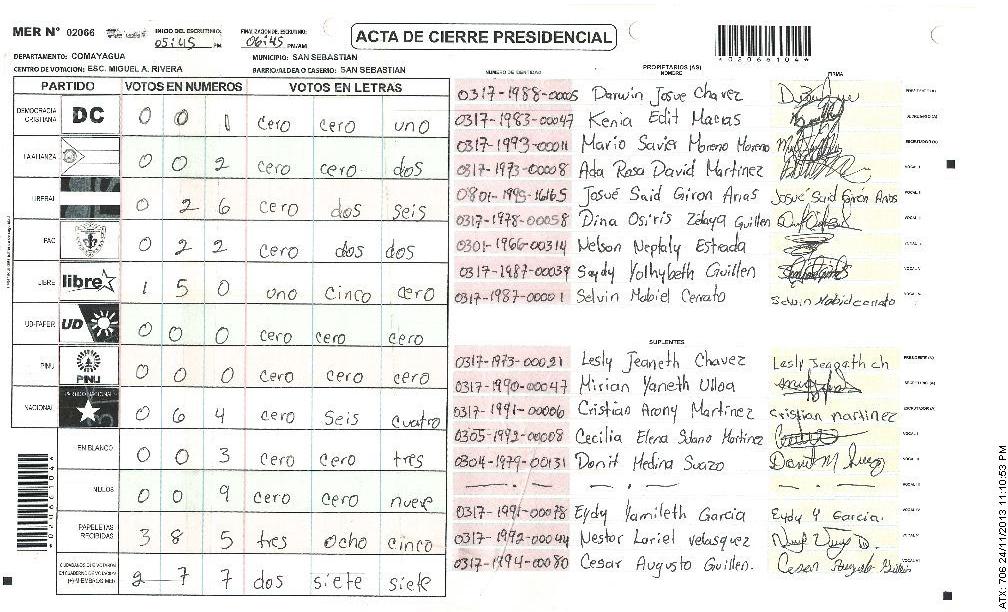 MER N° 02066
INICIO DEL ESCRUTINIO: 05:45 PM
FINALIZACION DE ESCRUTINIO: 06:45 PM/AM
ACTA DE CIERRE PRESIDENCIAL
*02066104*
DEPARTAMENTO: COMAYAGUA
MUNICIPIO: SAN SEBASTIAN
CENTRO DE VOTACION: ESC. MIGUEL A. RIVERA
BARRIO/ALDEA O CASERIO: SAN SEBASTIAN
PARTIDO VOTOS EN NUMEROS VOTOS EN LETRAS
DEMOCRACIA CRISTIANA DC 0 0 1 cero cero uno
LA ALIANZA 0 0 2 cero cero dos
LIBERAL 0 2 6 cero dos seis
PAC 0 2 2 cero dos dos
LIBRE libre 1 5 0 uno cinco cero
UD-FAPER UD 0 0 0 cero cero cero
PINU PINU 0 0 0 cero cero cero
NACIONAL PARTIDO NACIONAL 0 6 4 cero seis cuatro
EN BLANCO 0 0 3 cero cero tres
NULOS 0 0 9 cero cero nueve
PAPELETAS RECIBIDAS 3 8 5 tres ocho cinco
2 7 7 dos siete siete
*02066104*
NUMERO DE IDENTIDAD
PROPIETARIOS (AS)
NOMBRE
FIRMA
0317-1988-00005 Darwin Josue Chavez
0317-1983-00047 Kenia Edit Macias
0317-1993-00011 Mario Savier Moreno Moreno
0317-1973-00008 Ada Rosa David Martinez
0801-1995-16165 Josué Said Giron Arias Josué Said Giron Arias
0317-1978-00058 Dina Osiris Zelaya Guillen
0301-1966-00314 Nelson Neptaly Estrada
0317-1987-00039 Saydy Yolhybeth Guillen
0317-1987-00001 Selvin Mabiel Cerrato Selvin Mabiel cerrato
SUPLENTES
0317-1973-00021 Lesly Jeaneth Chavez
0317-1990-00047 Mirian Yaneth Ulloa
0317-1991-00006 Cristian Arony Martinez cristian martinez
0305-1992-00008 Cecilia Elena Solano Martinez
0304-1979-00131 Donit Medina Suazo
0317-1991-00078 Eydy Yamileth Garcia Eydy Y Garcia.
0317-1992-00044 Nestor Lariel Velasquez
0317-1994-00080 Cesar Augusto Guillen. Cesar Augusto Guillen
ATX: 706 24/11/2013 11:10:53 PM